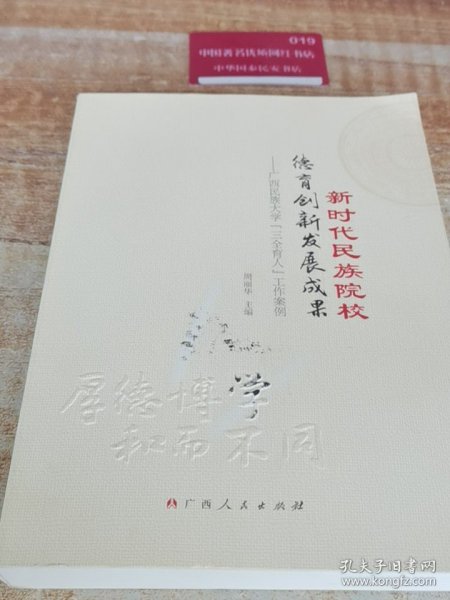 019
中国著名优质网红书店
中华国泰民安书店
新时代民族院校
德育创新发展成果
——广西民族大学「三全育人」工作案例
周丽华 主编
厚德博学
和而不同
广西人民出版社
孔夫子旧书网
www.kongfz.com